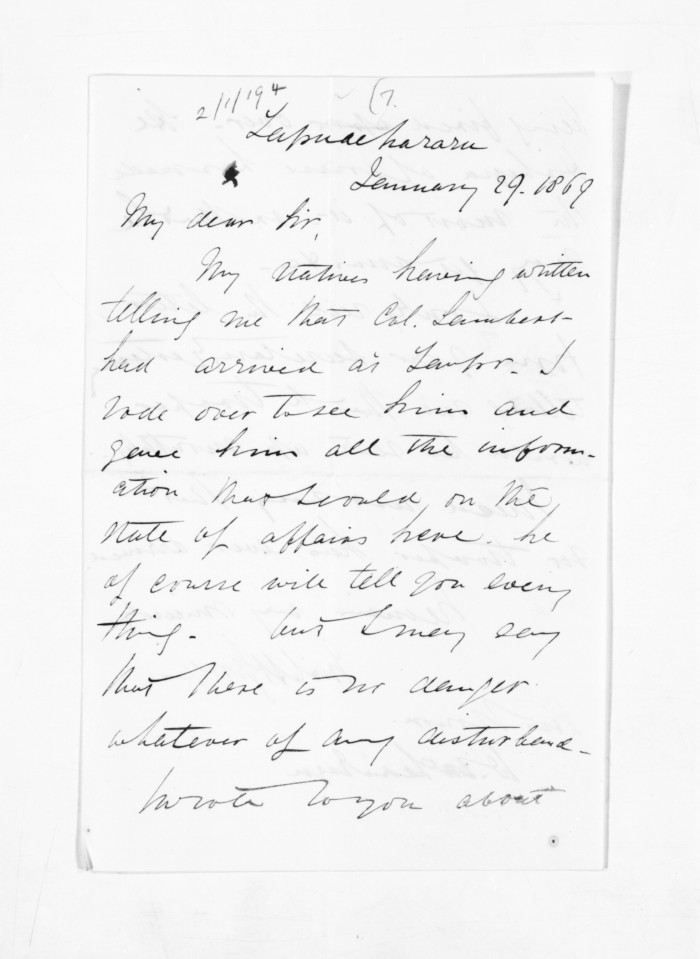 2/1/194 (7.
Tapuaeharuru
January 29. 1869
My dear Sir,
My natives having written
telling me that Col. Lambert
had arrived at I
rode over to see him and
gave him all the inform-
ation that I could on the
state of affairs here. he
of course will tell you every
thing. but I may say
that there is no danger
whatever of any disturbance-
I wrote to you about